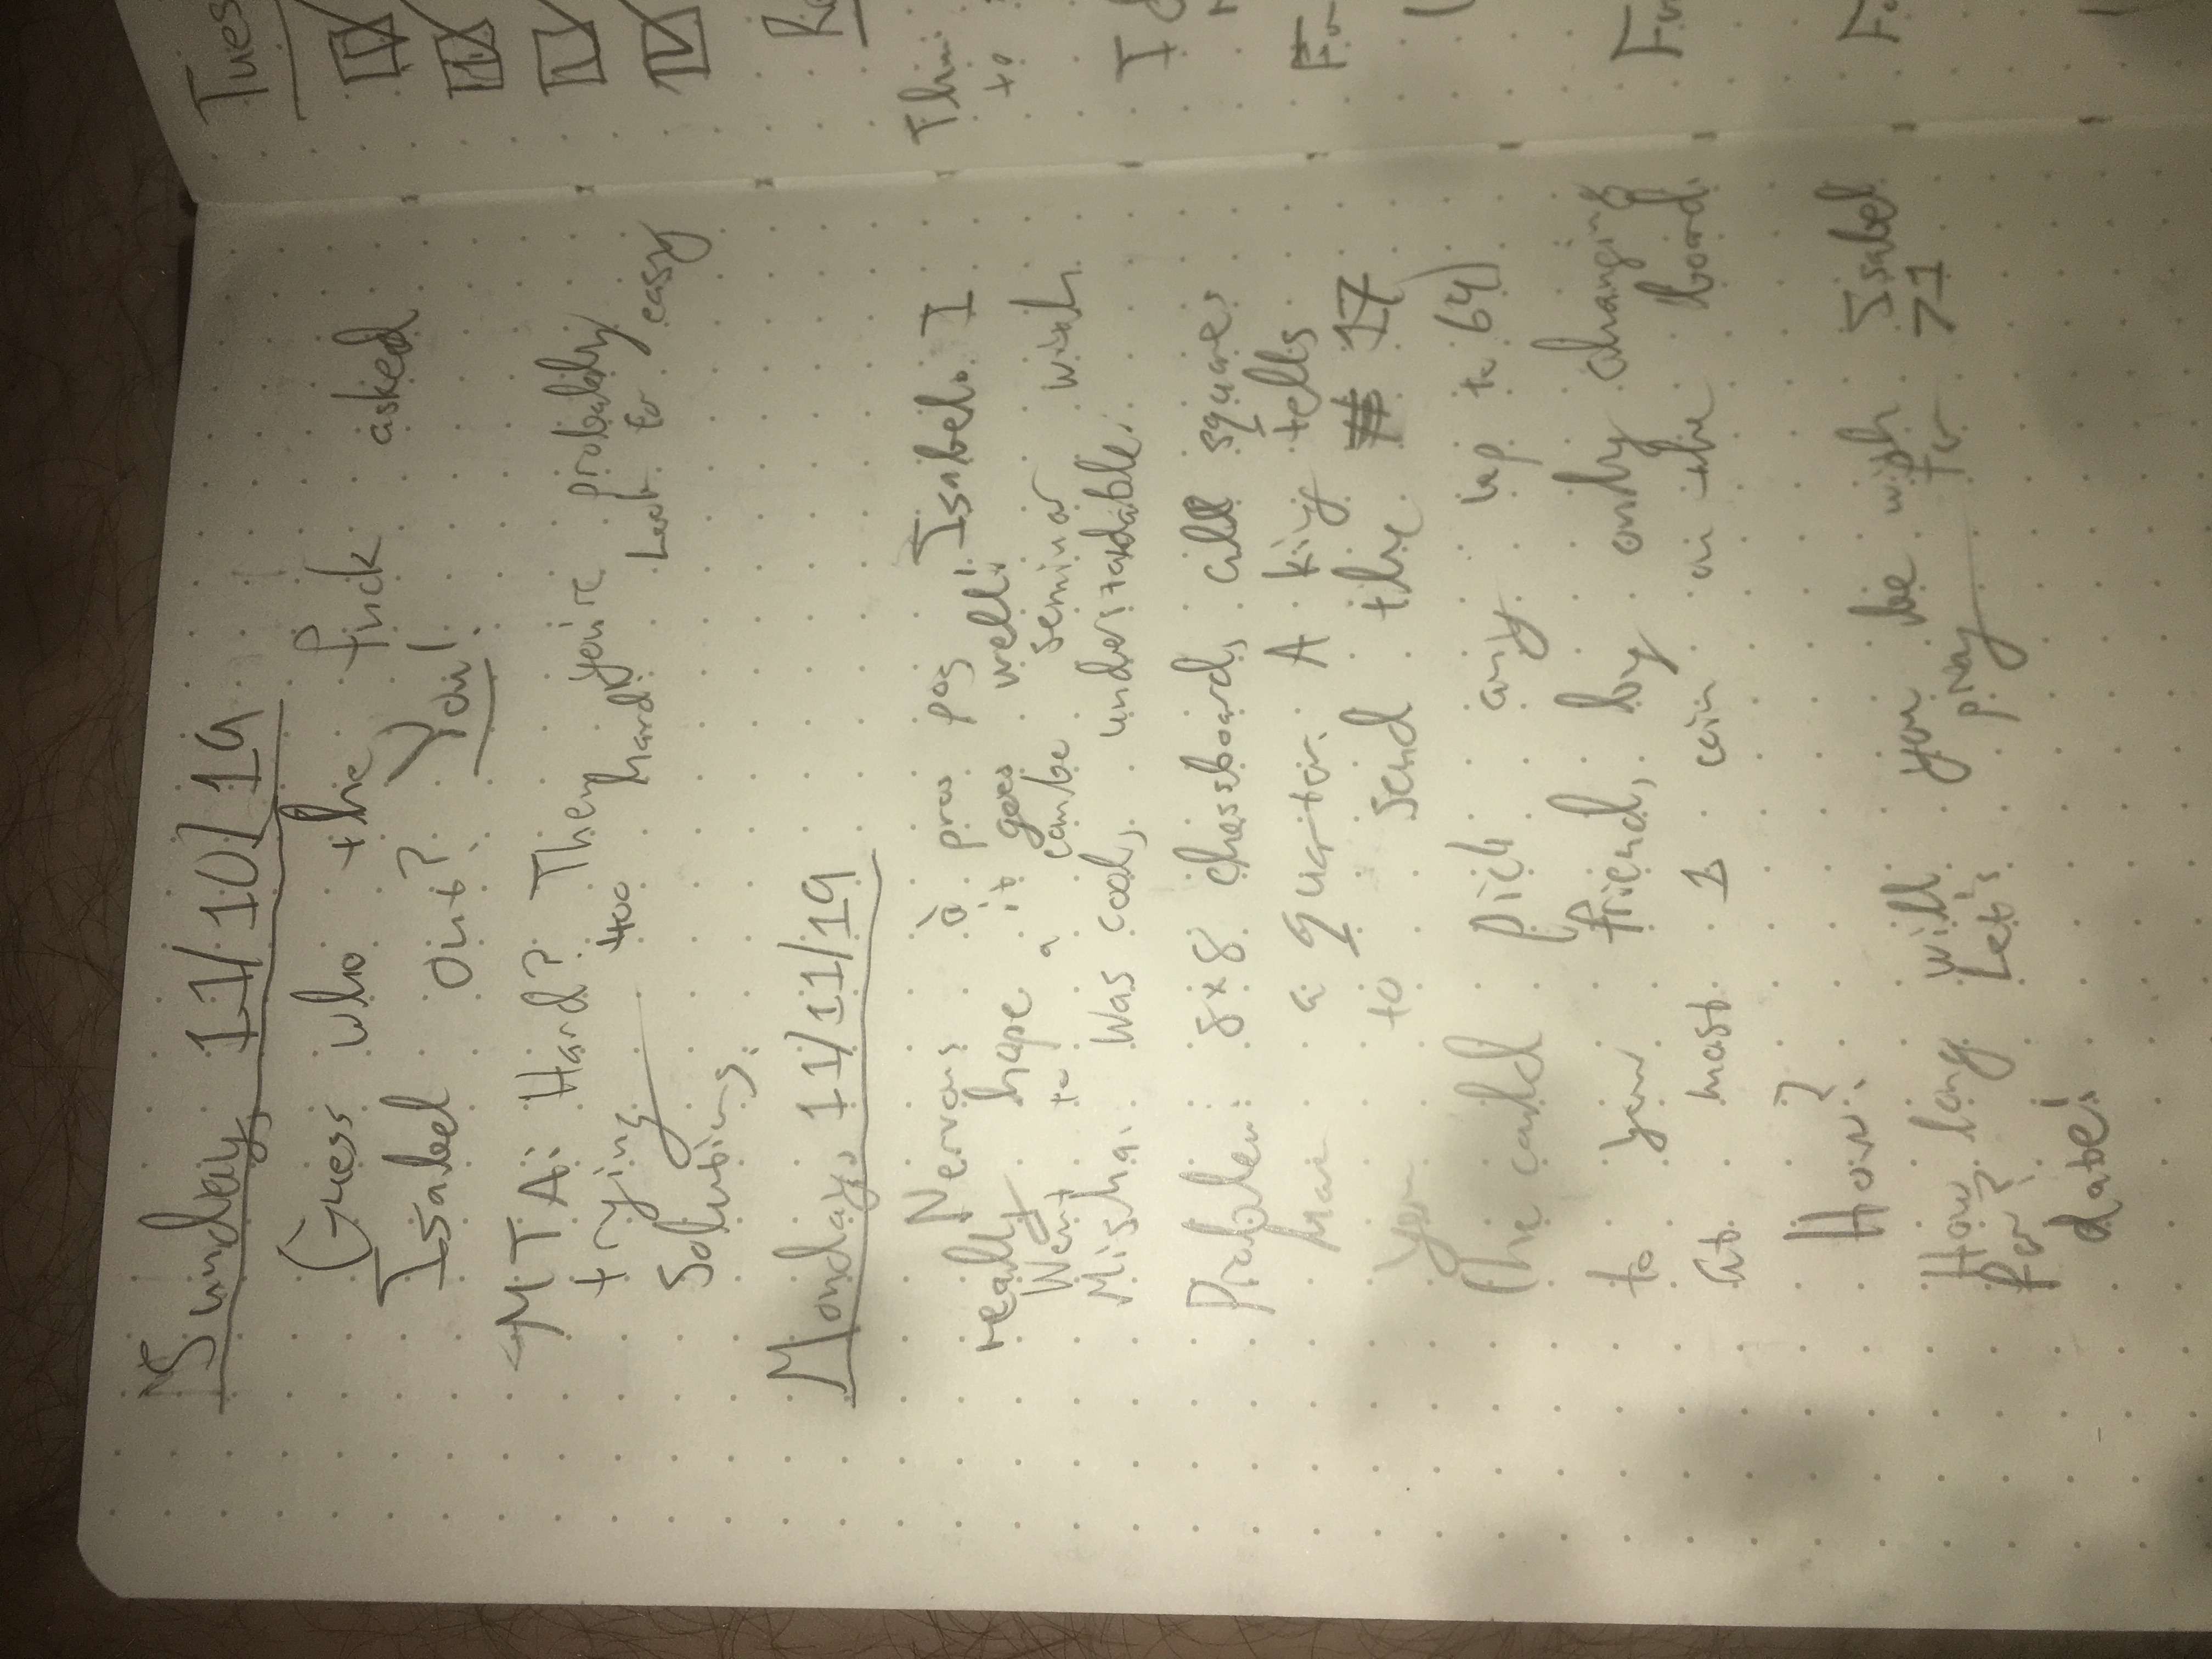 Sunday, 11/10/19
Guess who the fuck asked
Isabel out? You!
MTA: Hard? Then you're probably
trying too hard. Look for easy
Solutions.
Monday, 11/11/19
Nervous à pros pos Isabel. I
really hope it goes well!
Went to a combo seminar with
Misha. Was cool, understadable.
Problem: 8×8 chessboard, all squares
have a quarter. A king tells
you to send the # 17
(he could pick any up to 64)
to your friend, by only changing
at most 1 coin on the board.
How?
How long will you be with Isabel
for? Let's pray for >1
date!
Tues
to
I